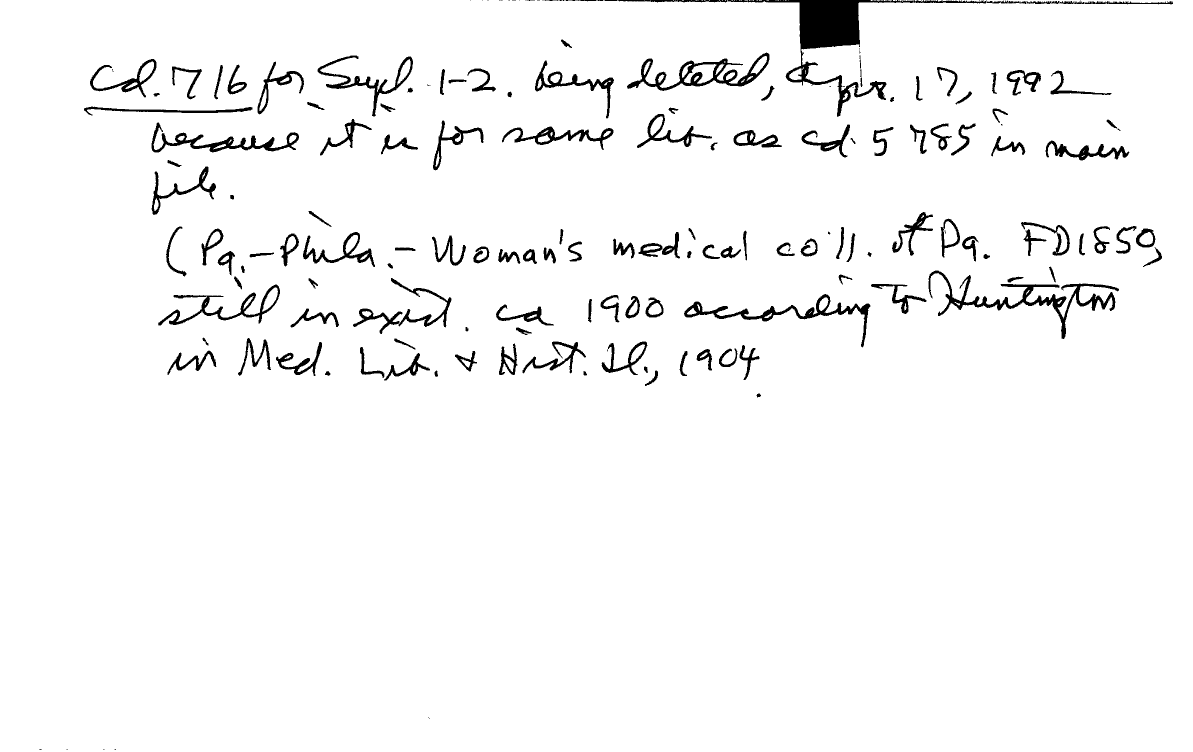 Cd. 716 for Supl. 1-2. being deleted, Apr. 17, 1992
because it is for same lib. as cd. 5785 in main
file.
(Pa.-Phila.- Woman's medical coll. of Pa. FD1850,
still in exist. ca 1900 according to Huntington
in Med. Lib. & Hist. Jl., 1904.